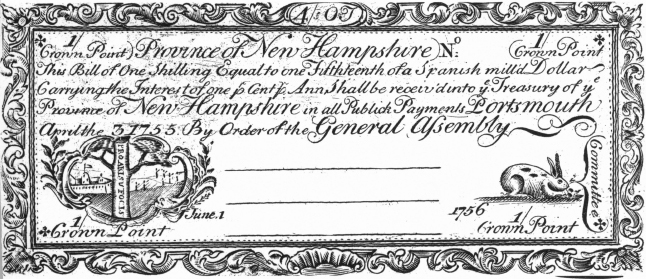 1/0T
1/ 1/
Crown Point) Province of New Hampshire) No. Crown Point
This Bill of One Shilling Equal to one Fifthteenth of a Spanish mill'd Dollar
Carrying the Interest of one p Cent p Ann Shall be receiv'd into ye Treasury of ye
Province of New Hampshire in all Publick Payments, Portsmouth
April the 3 1755 By Order of the General Assembly
Committee
June. 1 1756
1/ 1/
Crown Point Crown Point